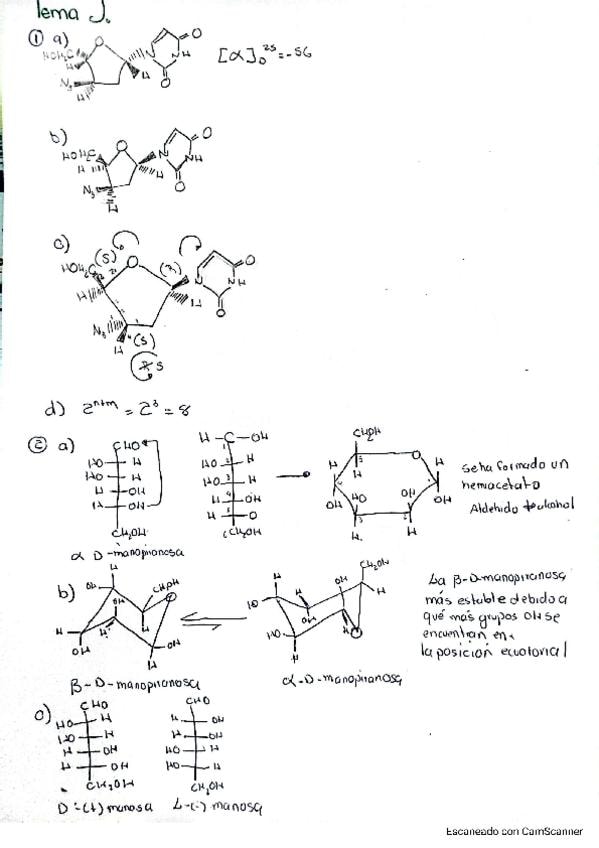 Tema J.
① a)
HOH₂C O N O
N H
H
N₃ H O
[α]D²⁵ = -56
b)
HOH₂C O N O
H H NH
N₃ H O
c)
(S) (R)
HOH₂C O N O
H H NH
N₃ (S) O
H
S
d) 2ⁿ⁺ᵐ = 2³ = 8
② a)
CHO
HO H
HO H
H OH
H OH
CH₂OH
α D-manopiranosa
H-C-OH
HO H
HO H
H OH
H O
CH₂OH
CH₂OH
H O H
H
OH HO OH OH
H H
se ha formado un
hemiacetato
Aldehido + alkohol
b)
H
OH CH₂OH
OH O
H H OH
OH H
β-D-manopiranosa
CH₂OH
H OH H
HO H
HO OH H O
H
α-D-manopiranosa
La β-D-manopiranosa
más estable debido a
qué más grupos OH se
encuentran en
la posición ecuatorial
c)
CHO
HO H
HO H
H OH
H OH
CH₂OH
D-(+) manosa
CHO
H OH
H OH
HO H
HO H
CH₂OH
L-(-) manosa
Escaneado con CamScanner